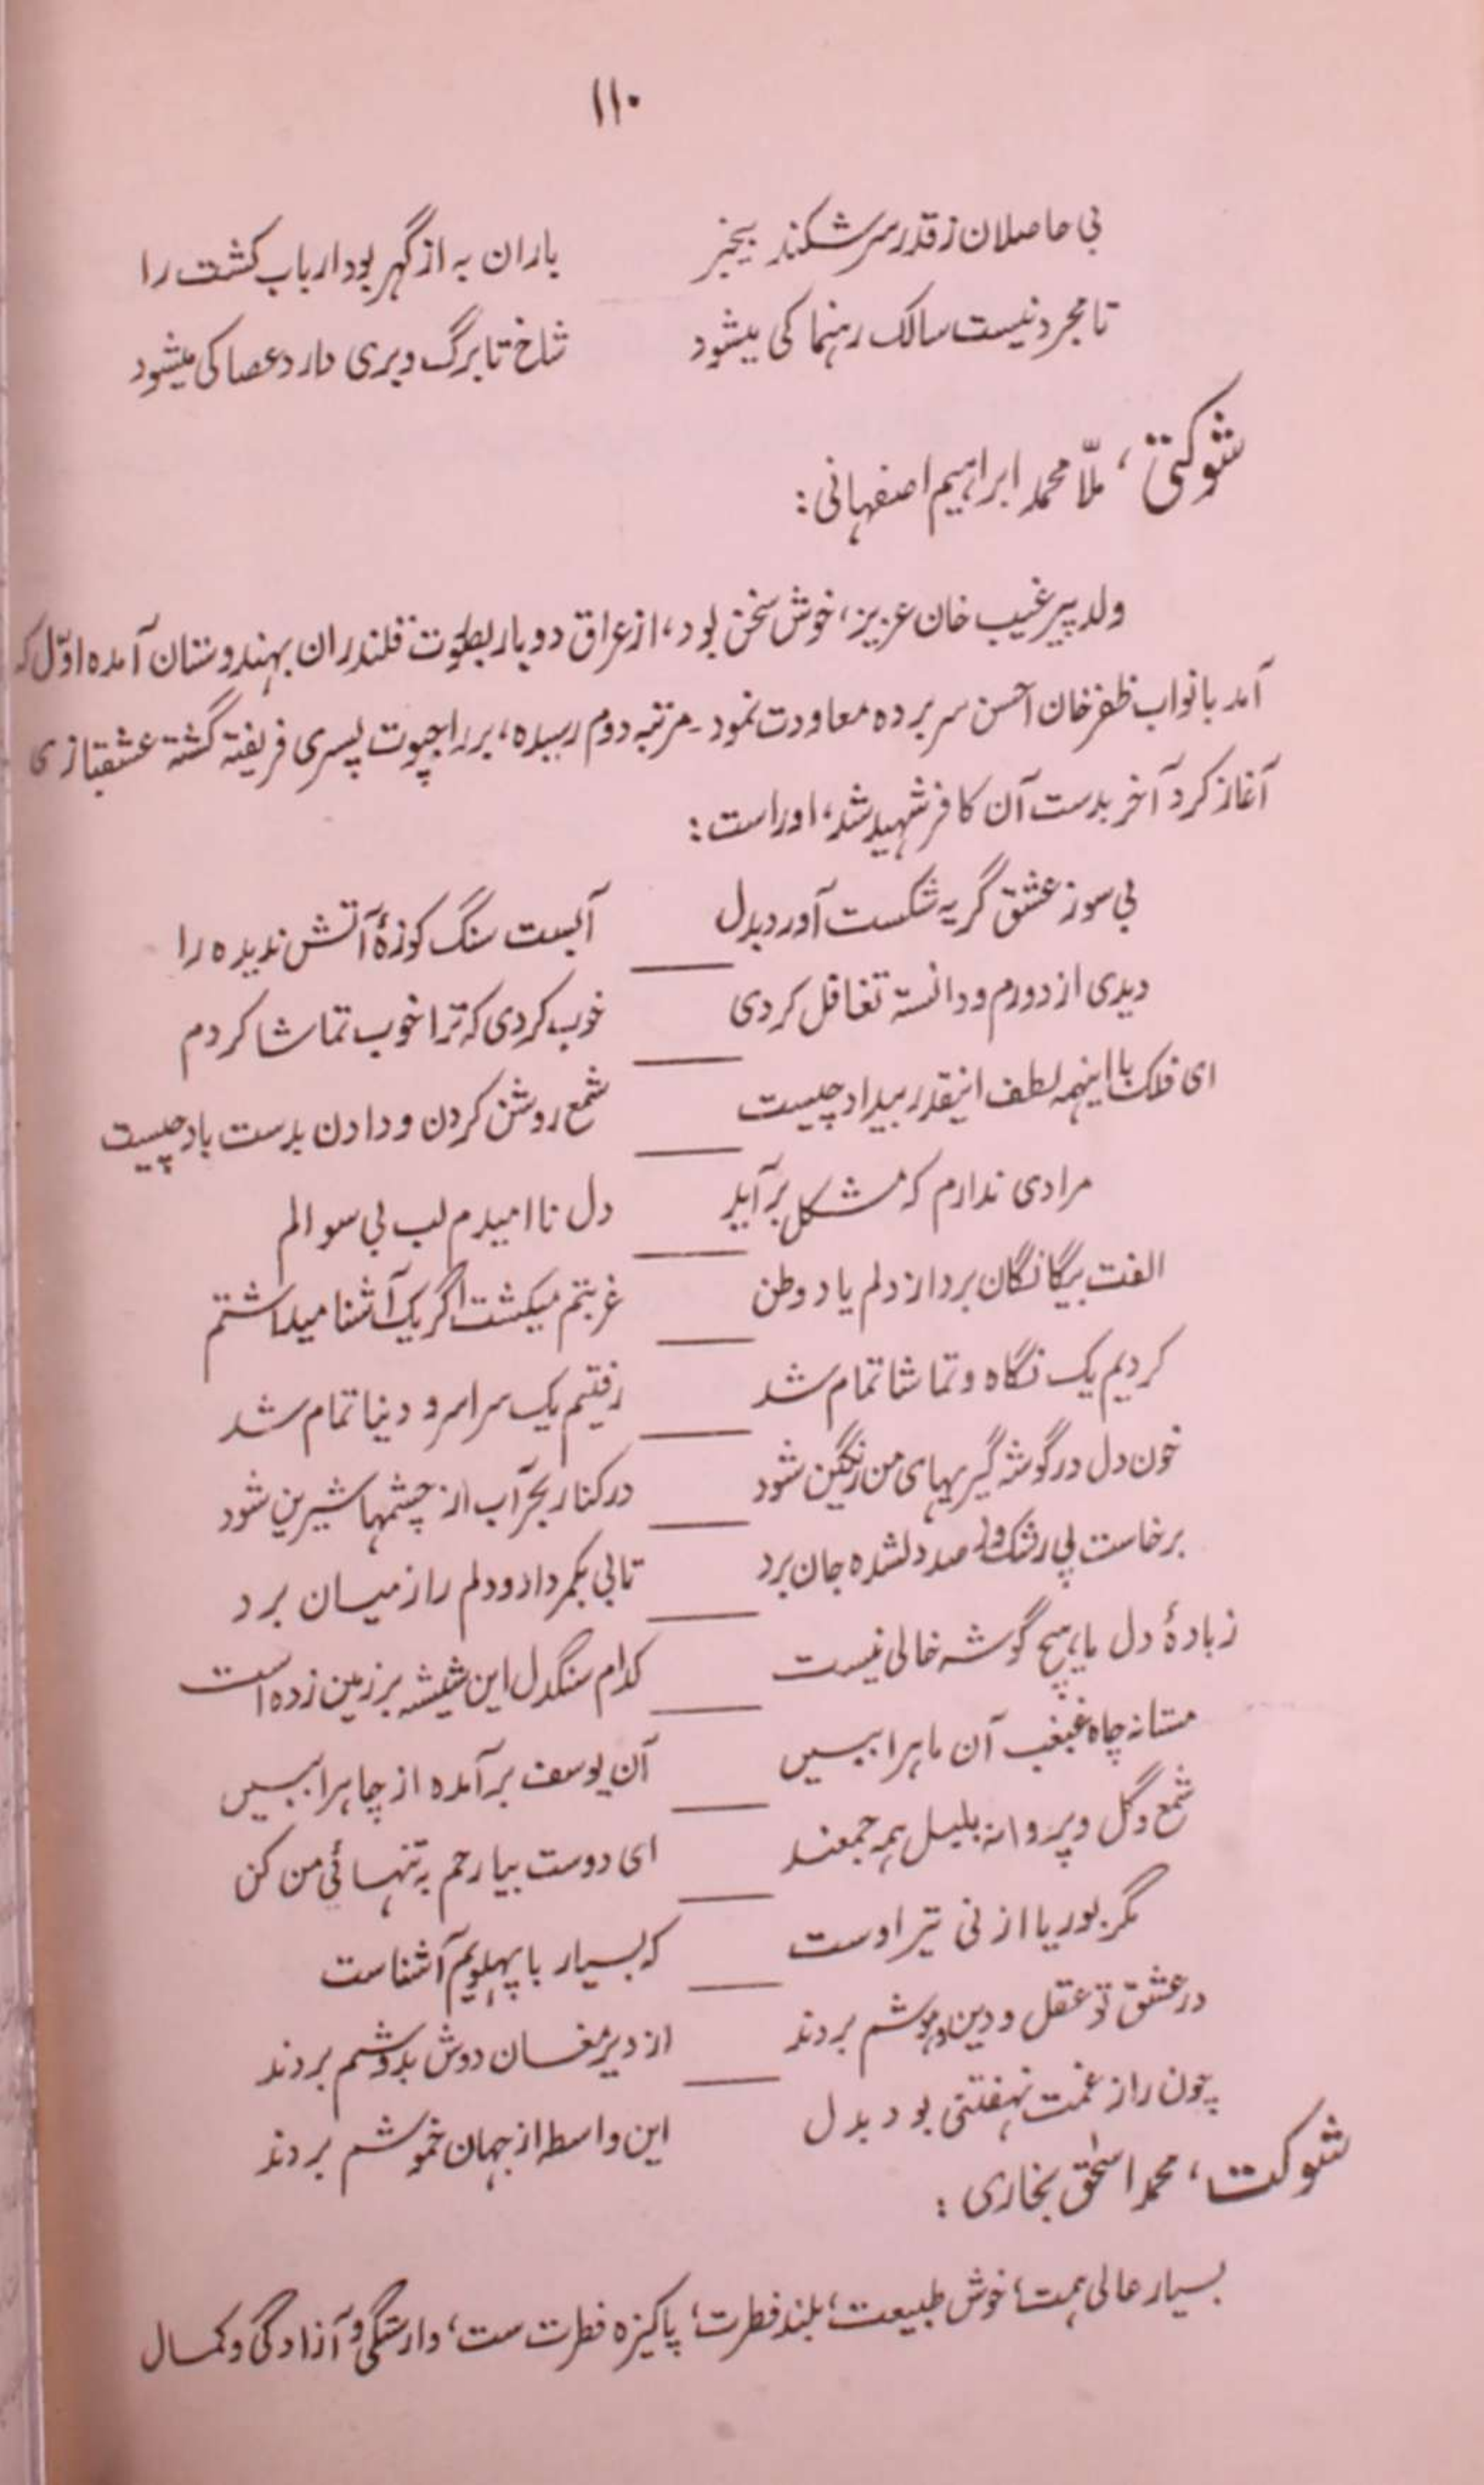 ۱۱۰
بی حاصلان ز قدر سرشکند بیخبر باران به از گهر بود ارباب کشت را
تا مجرد نیست سالک رہنما کی میشود شاخ تا برگ و بری دارد عصا کی میشود
شوکتی، ملّا محمد ابراہیم اصفہانی:
ولد پیر غیب خان عزیز، خوش سخن بود، از عراق دوبار بطوت قلندران بہندوستان آمده اوّل که
آمد با نواب ظفر خان احسن سر برده معاودت نمود۔ مرتبہ دوم رسیده، بر راجپوت پسری فریفتہ گشتہ عشقبازی
آغاز کرد آخر بدست آن کافر شہید شد، اوراست:
بی سوز عشق گریہ شکست آورد بدل آبست سنگ کوزۂ آتش ندیده را
دیدی از دورم و دانستہ تغافل کردی خوب کردی کہ ترا خوب تماشا کردم
ای فلک با اینہمہ لطف اینقدر بیداد چیست شمع روشن کردن و دادن بدست باد چیست
مرادی ندارم کہ مشکل برآید دل ناامیدم لب بی سوالم
الفت بیگانگان برد از دلم یاد وطن غربتم میکشت اگر یک آشنا میداشتم
کردیم یک نگاه و تماشا تمام شد رفتیم یک سراسر و دنیا تمام شد
خون دل در گوشہ گیریہای من رنگین شود در کنار بحر آب از چشمہا شیرین شود
برخاست پی رشک و صد دلشده جان برد تابی بکمر داد و دلم را ز میان برد
ز باده دل ما ہیچ گوشہ خالی نیست کدام سنگدل این شیشہ بر زمین زده است
مستانہ چاه غبغب آن ماہرا ببین آن یوسف برآمده از چاہرا ببین
شمع و گل و پروانہ بلبل ہمہ جمعند ای دوست بیا رحم بہ تنہائی من کن
مگر بوریا از نی تیر اوست کہ بسیار با پہلویم آشناست
در عشق تو عقل و دین و ہوشم بردند از دیر مغان دوش بدوشم بردند
چون راز غمت نہفتنی بود بدل این واسطہ از جہان خموشم بردند
شوکت، محمد اسحٰق بخاری:
بسیار عالی ہمت، خوش طبیعت، بلند فطرت، پاکیزه فطرت ست، وارستگی و آزادگی و کمال